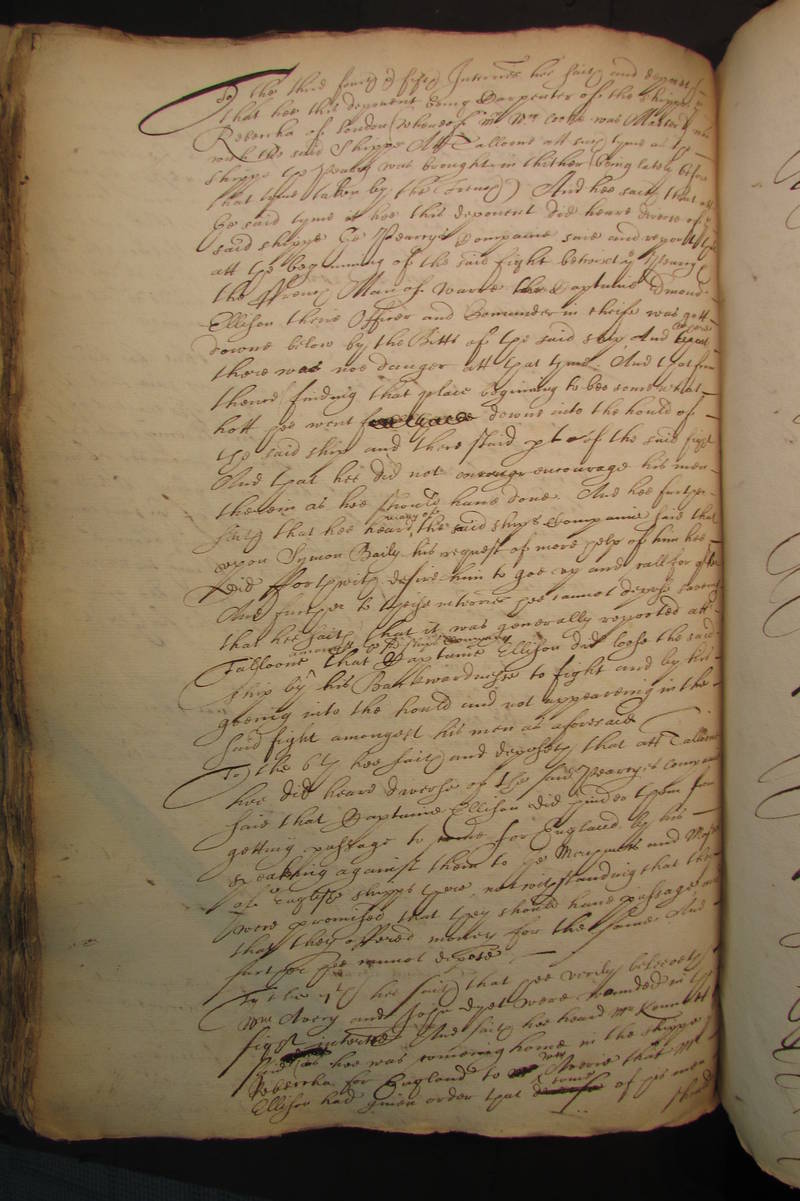 To the third fourth & fifth Interries hee saith and deposeth
that hee this deponent being Carpenter of the shippe
Rebecka of London (whereof Mr Cocke was Master)
with the said Shippe Att Talloone att such tyme as ye
shippe the Pearry was brought in thither (being lately before
that tyme taken by the ffrench) And hee saith that att
ye said tyme hee this deponent did heare diverse of ye
said shippe ye Pearry's Companie saie and report that
att ye beginning of the said fight betwixt ye Pearry &
the ffrench Man of Warre the Captaine Edmond
Ellison there Officer and Comander in cheife was gott
downe below by the Bitts of ye said ship And because
there was noe danger att that tyme. And that from
thence finding that place beginning to bee somewhat
hott hee went downe into the hould of
ye said ship and there staid pte of the said fight
And that hee did not encourage his men
therein as hee should have done. And hee further
saith that hee heard many of the said ships Companie saie that
upon Symon Baily his request of more help of him hee
did fforthwith desire him to goe up and call for
And further to theise interries hee cannot depose saveing
that hee saith that it was generally reported att
Talloone amongst ye ships Company that Captaine Ellison did loose the said
ship by his Backwardnesse to fight and by his
goeing into the hould and not appeareing in the
said fight amongst his men as aforesaid
To the 6th hee saith and deposeth that att Talloone
hee did heare diverse of the said Pearry's Companie
saie that Captaine Ellison did hinder them from
getting passage to come for England by his
speaking against them to ye Merchants and Masters
of English shipps there, notwithstanding that they
were promised that they should have passage and
that they offered money for the same And
further hee cannot depose
To the 7th hee saith that hee verily beleeveth
Wm Avery and John Dyet were wounded in ye
fight And saith hee heard Mr Kennett
said as hee was comeing home in the shippe
Rebecka for England to Wm Averie that Mr
Ellison had given order that some of his men
should